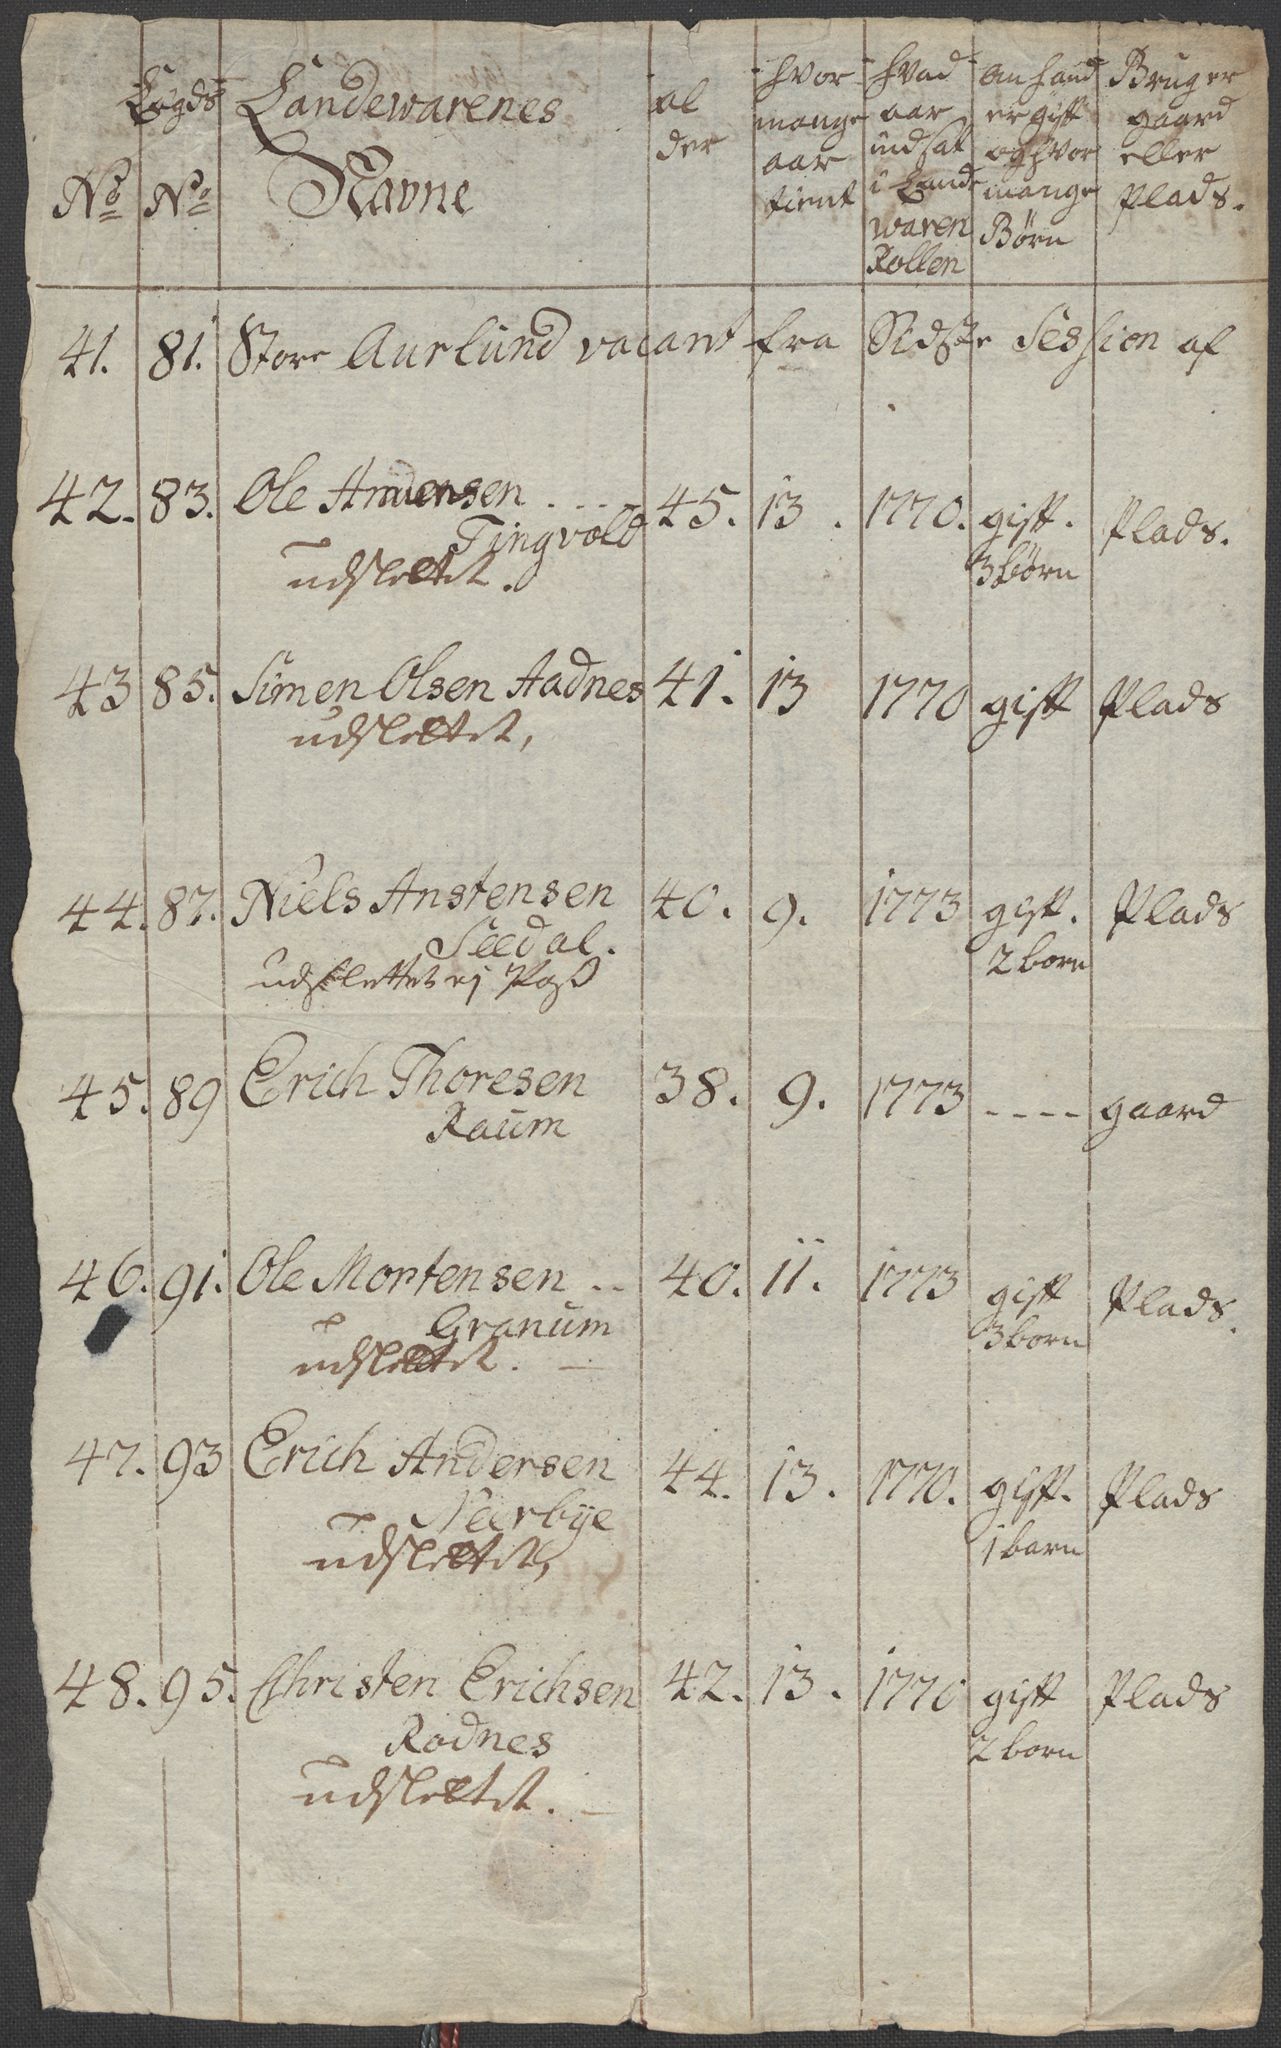 No
Lægds No
Landewarenes Navne
al der
hvor mange aar tient
hvad aar indsat i Lande waren Rollen
om hand er gift og hvor mange Børn
Bruger gaard eller Plads.
41. 81. Store Aurlund vacant fra Sidste Session af
42. 83. Ole Amdensen .... 45. 13. 1770. gift. Plads.
Tingvold 3 børn
udslettet.
43 85. Simen Olsen Aadnes 41. 13 1770 gift Plads
udslettet,
44. 87. Niels Anstensen 40. 9. 1773 gift. Plads
Seedal. 2 born
udslettet ej Pass
45. 89 Erich Thoresen 38. 9. 1773 ---- gaard
Raum
46. 91. Ole Mortensen .. 40. 11. 1773 gift Plads.
Granum 3 born
udslettet. —
47. 93 Erich Andersen 44. 13. 1770. gift. Plads
Neerbye 1 barn
udslettet,
48. 95. Christen Erichsen 42. 13. 1770 gift Plads
Rodnes 2 born
udslettet. —